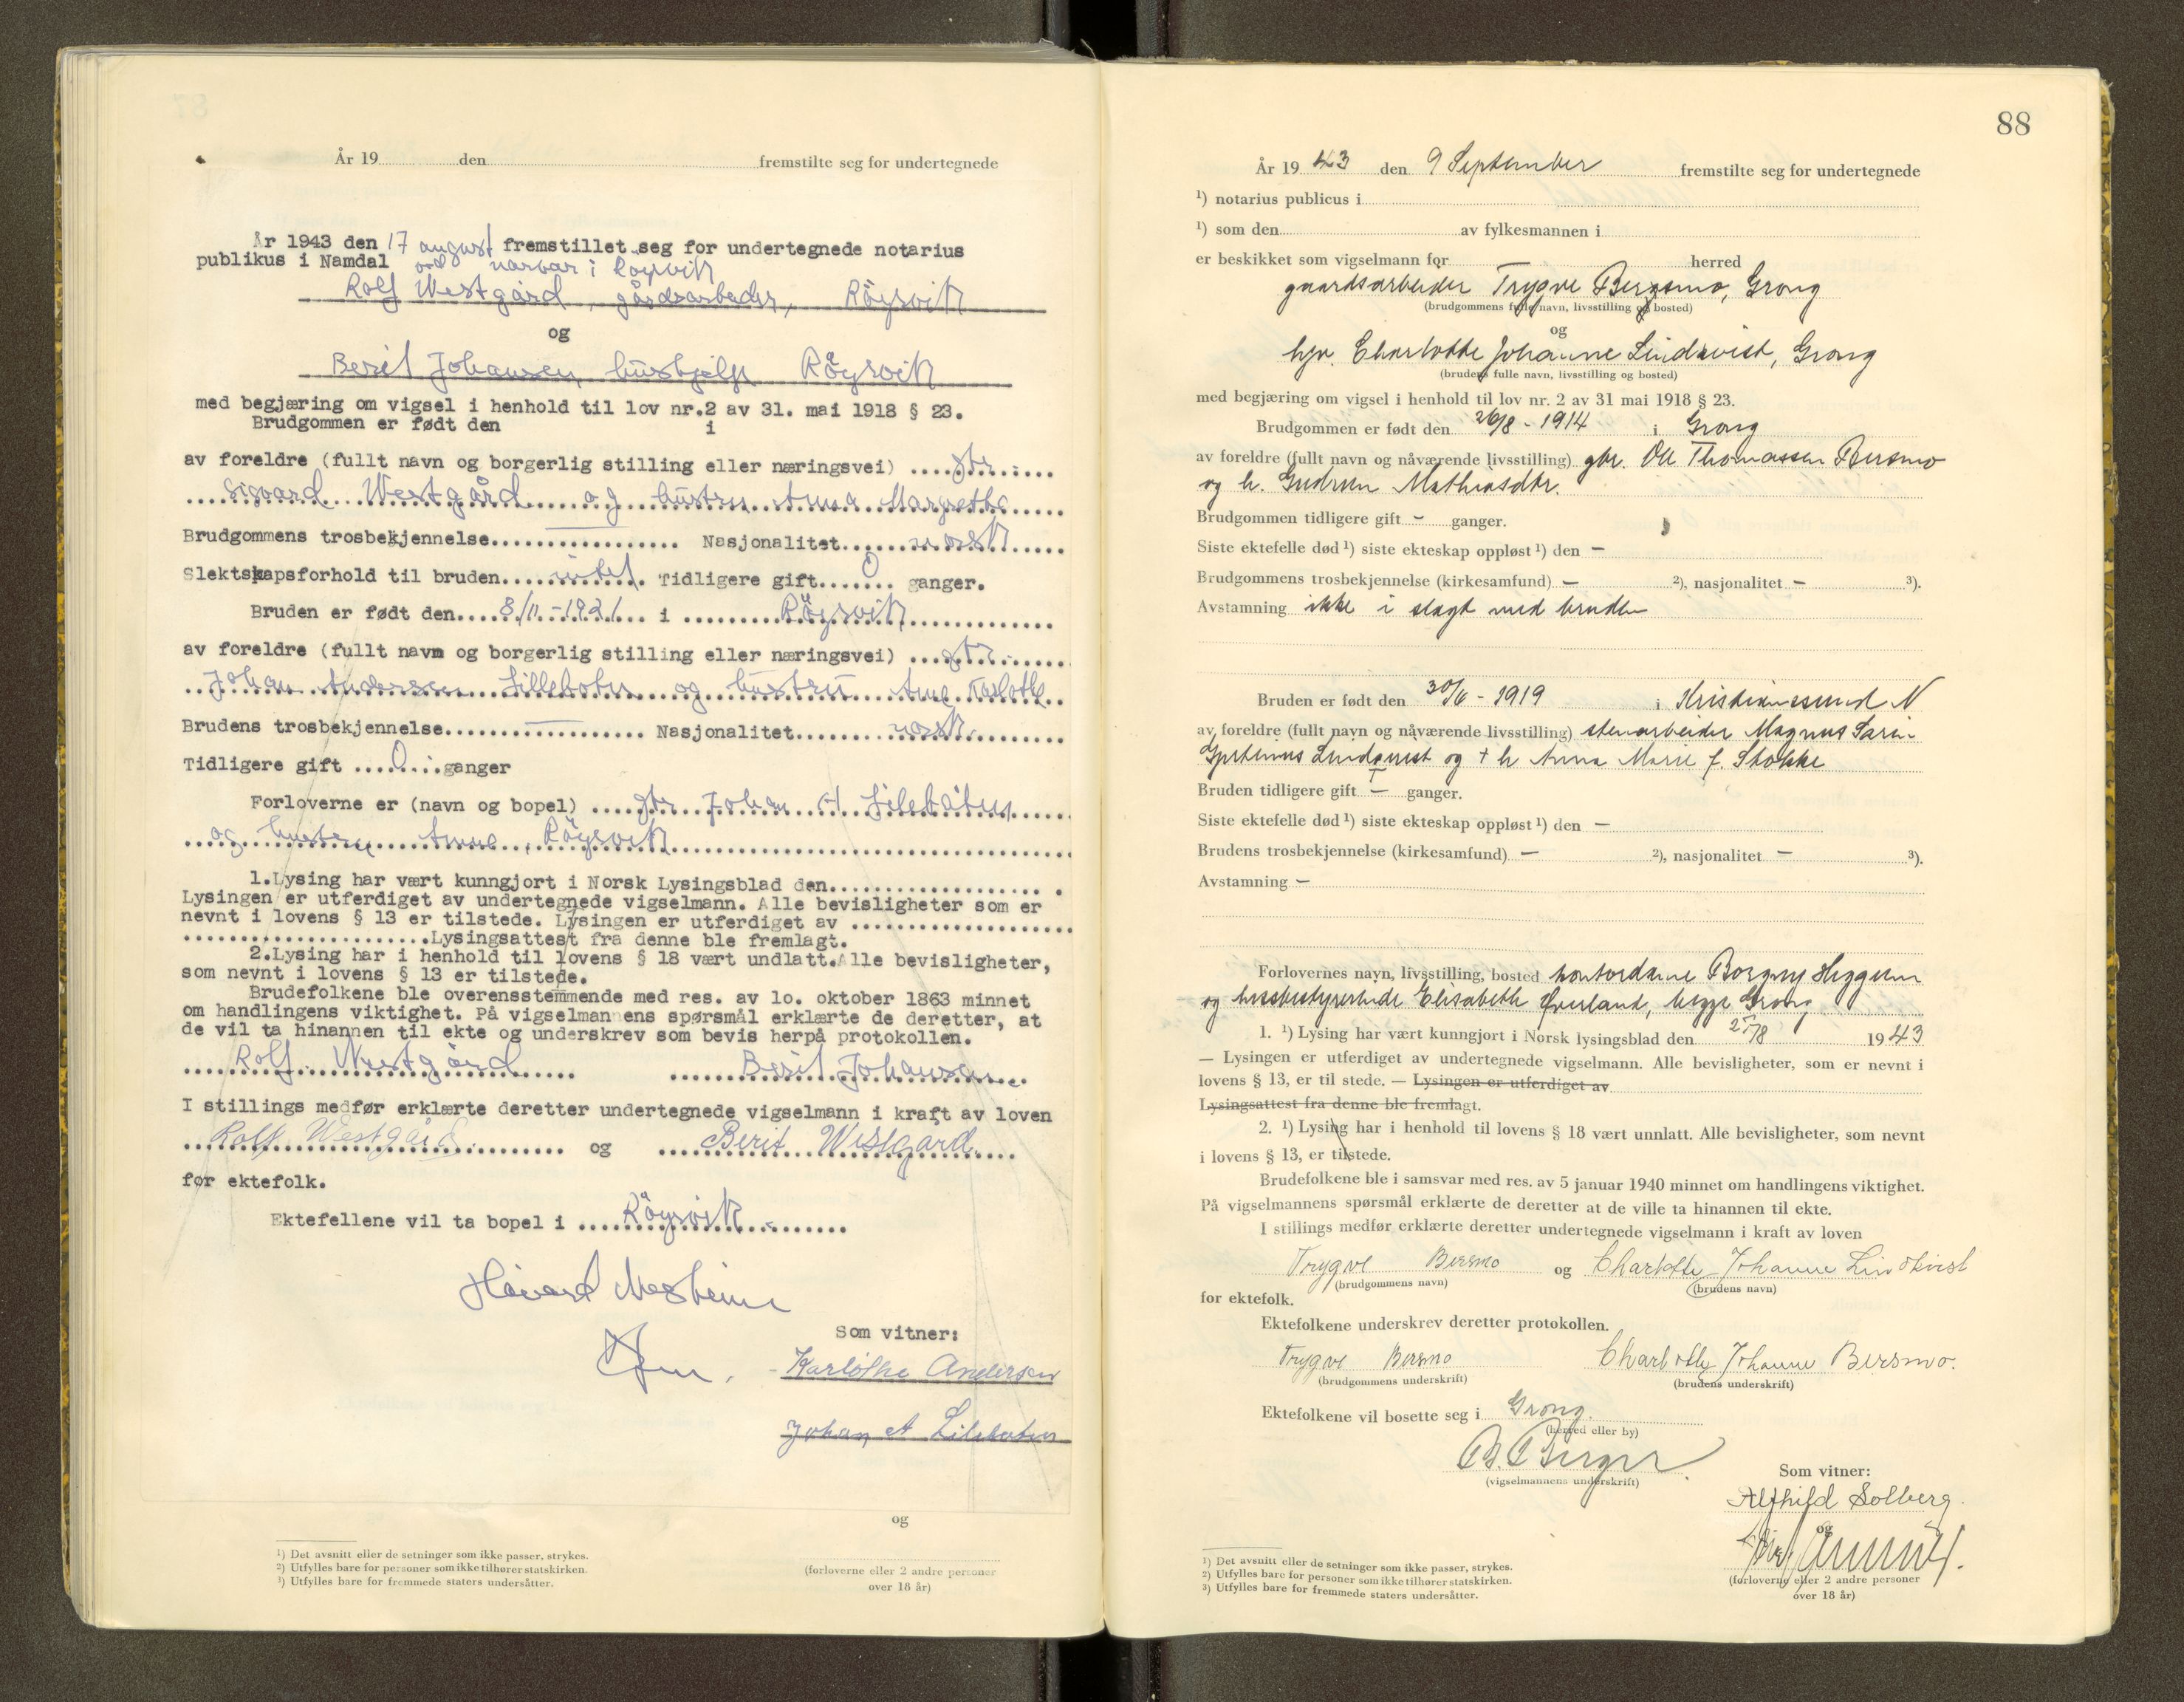 År 19 den fremstilte seg for undertegnede
År 1943 den 17 august fremstillet seg for undertegnede notarius
publikus i Namdal i Röyrvik
Rolf Westgård, gårdsarbeider, Röyrvik
og
Berit Johansen, hushjelp Röyrvik
med begjæring om vigsel i henhold til lov nr.2 av 31. mai 1918 § 23.
Brudgommen er født den i
av foreldre (fullt navn og borgerlig stilling eller næringsvei) gbr.
Sigvard Westgård og hustru Anna Margrethe
Brudgommens trosbekjennelse Nasjonalitet norsk
Slektskapsforhold til bruden intet Tidligere gift 0 ganger.
Bruden er født den 8/11 - 1921 i Röyrvik
av foreldre (fullt navn og borgerlig stilling eller næringsvei) gbr.
Johan Andersen Lillebotn og hustru Anne Karlotte
Brudens trosbekjennelse Nasjonalitet norsk
Tidligere gift 0 ganger
Forloverne er (navn og bopel) gbr Johan A
og hustru Anne, Röyrvik
1.Lysing har vært kunngjort i Norsk Lysingsblad den
Lysingen er utferdiget av undertegnede vigselmann. Alle bevisligheter som er
nevnt i lovens § 13 er tilstede. Lysingen er utferdiget av
Lysingsattest fra denne ble fremlagt.
2.Lysing har i henhold til lovens § 18 vært undlatt.Alle bevisligheter,
som nevnt i lovens § 13 er tilstede.
Brudefolkene ble overensstemmende med res. av 10. oktober 1863 minnet
om handlingens viktighet. På vigselmannens spørsmål erklærte de deretter, at
de vil ta hinannen til ekte og underskrev som bevis herpå protokollen.
Rolf Westgård Berit Johansen
I stillings medfør erklærte deretter undertegnede vigselmann i kraft av loven
Rolf Westgård og Berit Westgård
for ektefolk.
Ektefellene vil ta bopel i Röyrvik
Som vitner:
Karlothe Andersen
Johan A
og
¹) Det avsnitt eller de setninger som ikke passer, strykes.
²) Utfylles bare for personer som ikke tilhører statskirken.
³) Utfylles bare for fremmede staters undersåtter.
(forloverne eller 2 andre personer
over 18 år)
88
År 1943 den 9 September fremstilte seg for undertegnede
¹) notarius publicus i
¹) som den av fylkesmannen i
er beskikket som vigselmann for herred
gaardsarbeider Trygve Bersmo, Grong
(brudgommens fulle navn, livsstilling og bosted)
og
hjv. Charlotte Johanne Lindkvist, Grong
(brudens fulle navn, livsstilling og bosted)
med begjæring om vigsel i henhold til lov nr. 2 av 31 mai 1918 § 23.
Brudgommen er født den 26/8 - 1914 i Grong
av foreldre (fullt navn og nåværende livsstilling) gbr. Ole Thomassen Bersmo
og h. Gudrun Mathiasdtr.
Brudgommen tidligere gift - ganger.
Siste ektefelle død ¹) siste ekteskap oppløst ¹) den -
Brudgommens trosbekjennelse (kirkesamfund) - ²), nasjonalitet - ³).
Avstamning ikke i slægt med bruden
Bruden er født den 30/6 - 1919 i Kristianssund N
av foreldre (fullt navn og nåværende livsstilling) stenarbeider Magnus
Lindqvist og + h Anna Marie f. Stokke
Bruden tidligere gift - ganger.
Siste ektefelle død ¹) siste ekteskap oppløst ¹) den -
Brudens trosbekjennelse (kirkesamfund) - ²), nasjonalitet - ³).
Avstamning -
Forlovernes navn, livsstilling, bosted kontordame Borgny Heggum
og husbestyrerinde Elisabeth Överland, begge Grong
1. ¹) Lysing har vært kunngjort i Norsk lysingsblad den 25/8 1943
— Lysingen er utferdiget av undertegnede vigselmann. Alle bevisligheter, som er nevnt i
lovens § 13, er til stede. — Lysingen er utferdiget av
Lysingsattest fra denne ble fremlagt.
2. ¹) Lysing har i henhold til lovens § 18 vært unnlatt. Alle bevisligheter, som nevnt
i lovens § 13, er tilstede.
Brudefolkene ble i samsvar med res. av 5 januar 1940 minnet om handlingens viktighet.
På vigselmannens spørsmål erklærte de deretter at de ville ta hinannen til ekte.
I stillings medfør erklærte deretter undertegnede vigselmann i kraft av loven
Trygve Bersmo og Charlotte Johanne Lindkvist
(brudgommens navn) (brudens navn)
for ektefolk.
Ektefolkene underskrev deretter protokollen.
Trygve Bersmo Charlotte Johanne Bersmo.
(brudgommens underskrift) (brudens underskrift)
Ektefolkene vil bosette seg i Grong.
(herred eller by)
(vigselmannens underskrift)
Som vitner:
Alfhild Solberg.
og
(forloverne eller 2 andre personer
over 18 år)
¹) Det avsnitt eller de setninger som ikke passer, strykes.
²) Utfylles bare for personer som ikke tilhører statskirken.
³) Utfylles bare for fremmede staters undersåtter.